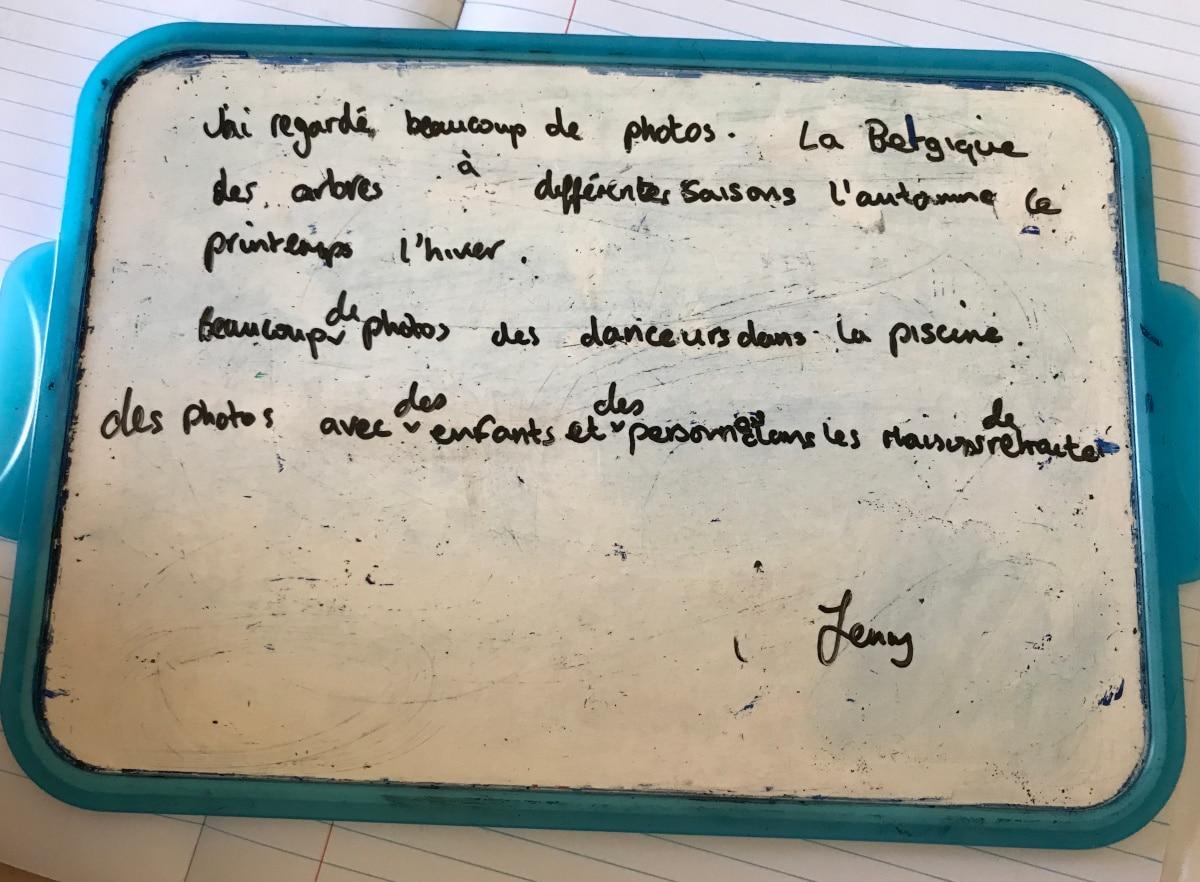 J'ai regardé beaucoup de photos. La Belgique
des arbres à différentes saisons l'automne le
printemps l'hiver.
Beaucoup de photos des danceurs dans la piscine.
des photos avec des enfants et des personnes dans les maisons de retraite
Jenny